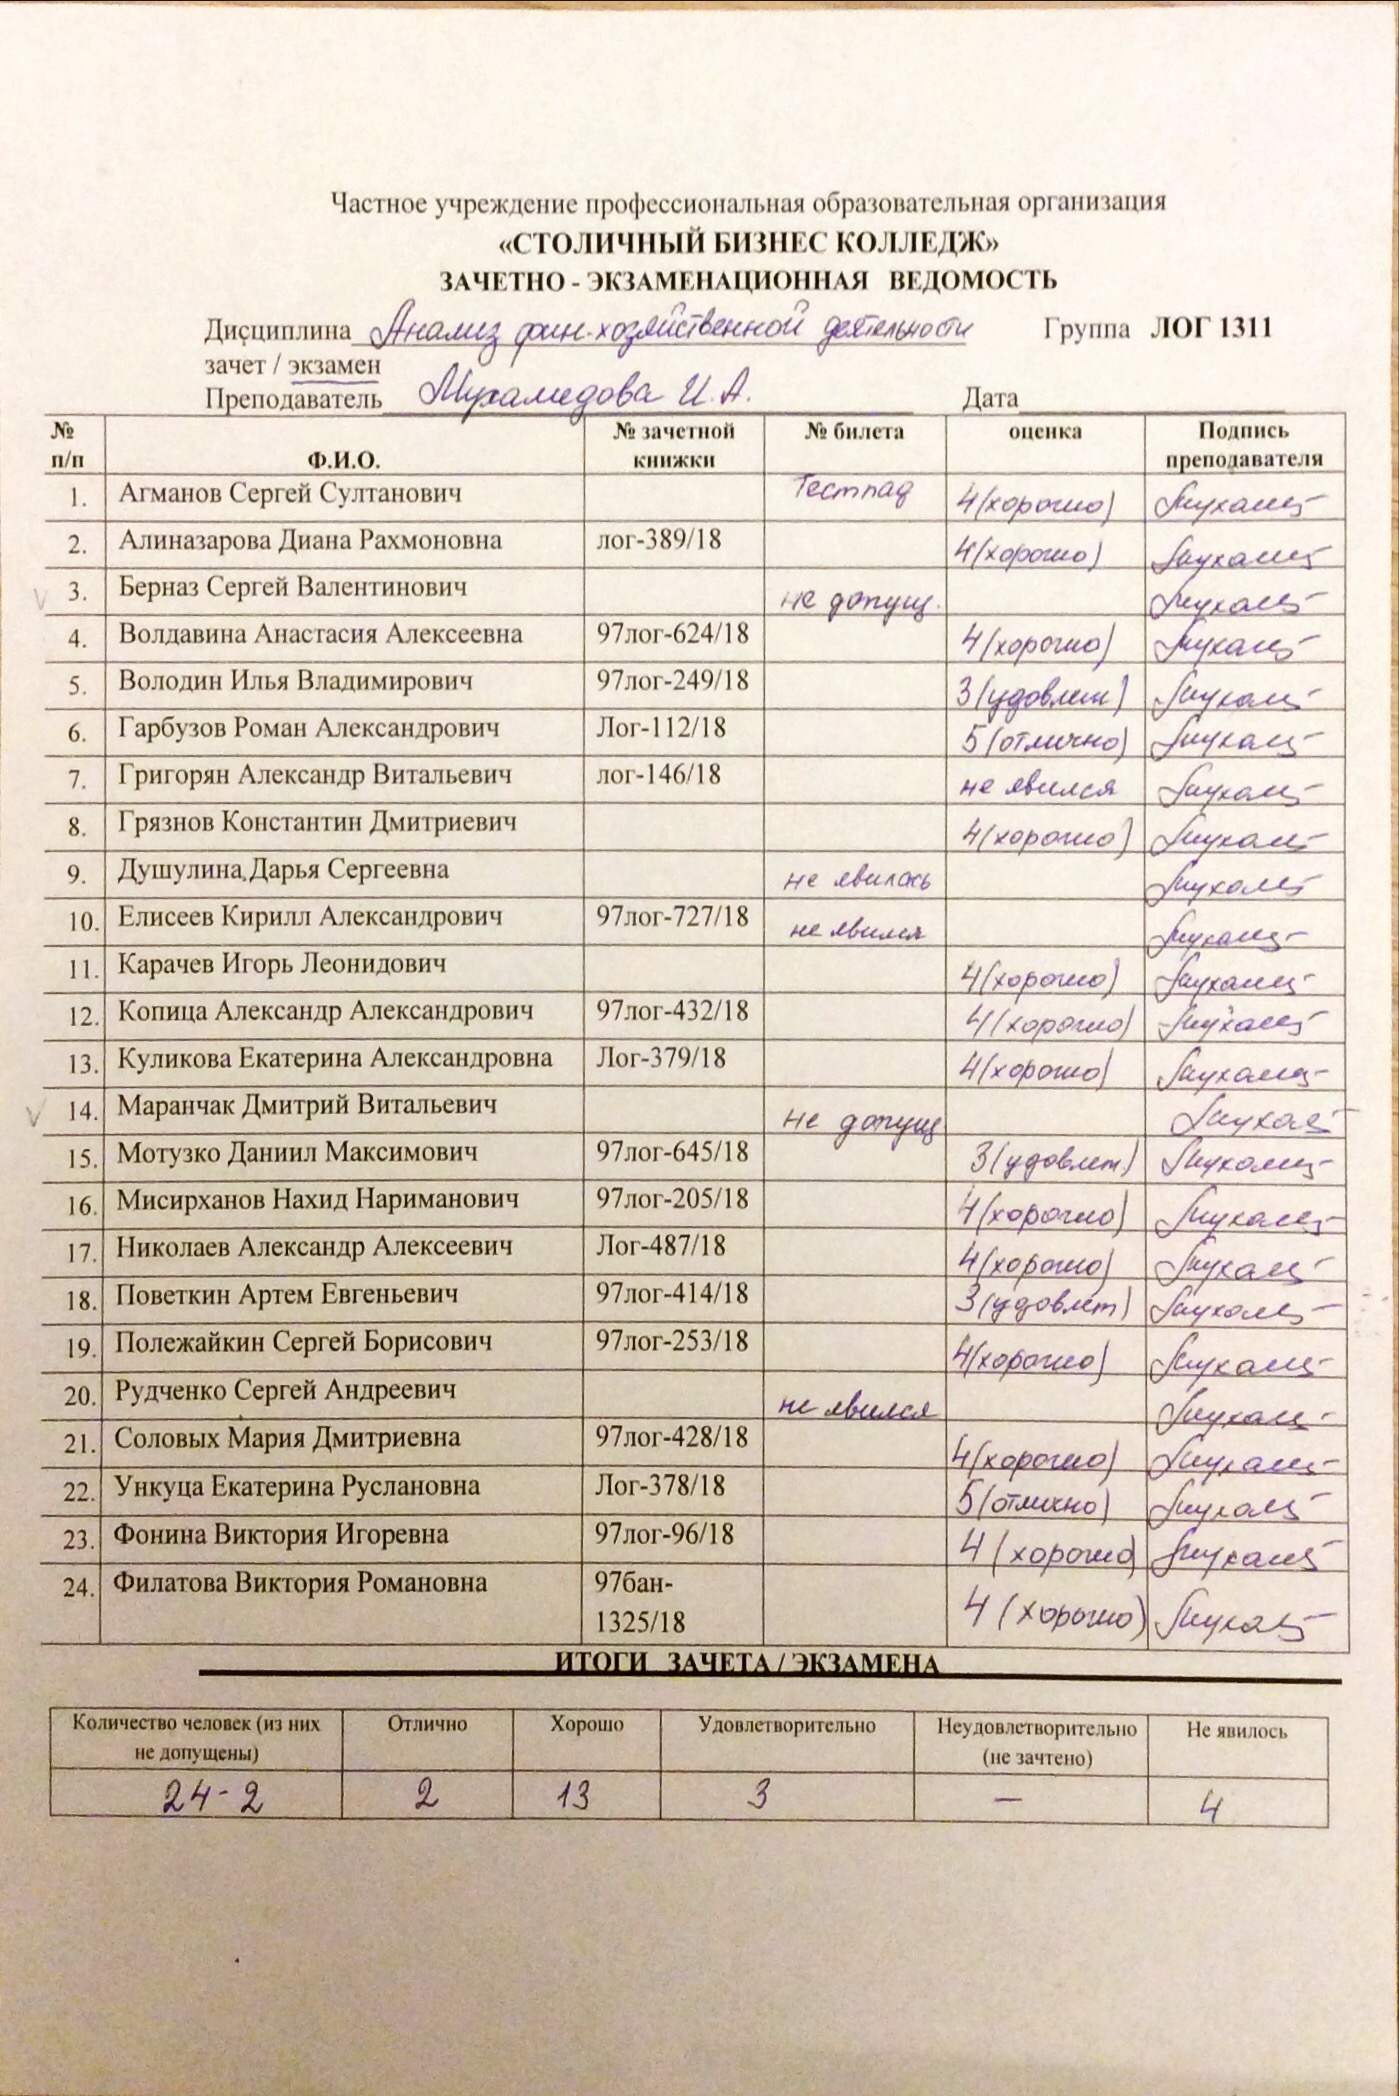 Частное учреждение профессиональная образовательная организация
«СТОЛИЧНЫЙ БИЗНЕС КОЛЛЕДЖ»
ЗАЧЕТНО - ЭКЗАМЕНАЦИОННАЯ ВЕДОМОСТЬ
Дисциплина Анализ фин-хозяйственной деятельности Группа ЛОГ 1311
зачет / экзамен
Преподаватель Мухамедова И.А. Дата
№ п/п Ф.И.О. № зачетной книжки № билета оценка Подпись преподавателя
1. Агманов Сергей Султанович Тестпад 4(хорошо)
2. Алиназарова Диана Рахмоновна лог-389/18 4(хорошо)
3. Берназ Сергей Валентинович не допущ.
4. Волдавина Анастасия Алексеевна 97лог-624/18 4(хорошо)
5. Володин Илья Владимирович 97лог-249/18 3(удовлет)
6. Гарбузов Роман Александрович Лог-112/18 5(отлично)
7. Григорян Александр Витальевич лог-146/18 не явился
8. Грязнов Константин Дмитриевич 4(хорошо)
9. Душулина Дарья Сергеевна не явилась
10. Елисеев Кирилл Александрович 97лог-727/18 не явился
11. Карачев Игорь Леонидович 4(хорошо)
12. Копица Александр Александрович 97лог-432/18 4(хорошо)
13. Куликова Екатерина Александровна Лог-379/18 4(хорошо)
14. Маранчак Дмитрий Витальевич не допущ
15. Мотузко Даниил Максимович 97лог-645/18 3(удовлет)
16. Мисирханов Нахид Нариманович 97лог-205/18 4(хорошо)
17. Николаев Александр Алексеевич Лог-487/18 4(хорошо)
18. Поветкин Артем Евгеньевич 97лог-414/18 3(удовлет)
19. Полежайкин Сергей Борисович 97лог-253/18 4(хорошо)
20. Рудченко Сергей Андреевич не явился
21. Соловых Мария Дмитриевна 97лог-428/18 4(хорошо)
22. Ункуца Екатерина Руслановна Лог-378/18 5(отлично)
23. Фонина Виктория Игоревна 97лог-96/18 4 (хорошо)
24. Филатова Виктория Романовна 97бан-1325/18 4 (хорошо)
ИТОГИ ЗАЧЕТА / ЭКЗАМЕНА
Количество человек (из них не допущены) Отлично Хорошо Удовлетворительно Неудовлетворительно (не зачтено) Не явилось
24-2 2 13 3 — 4